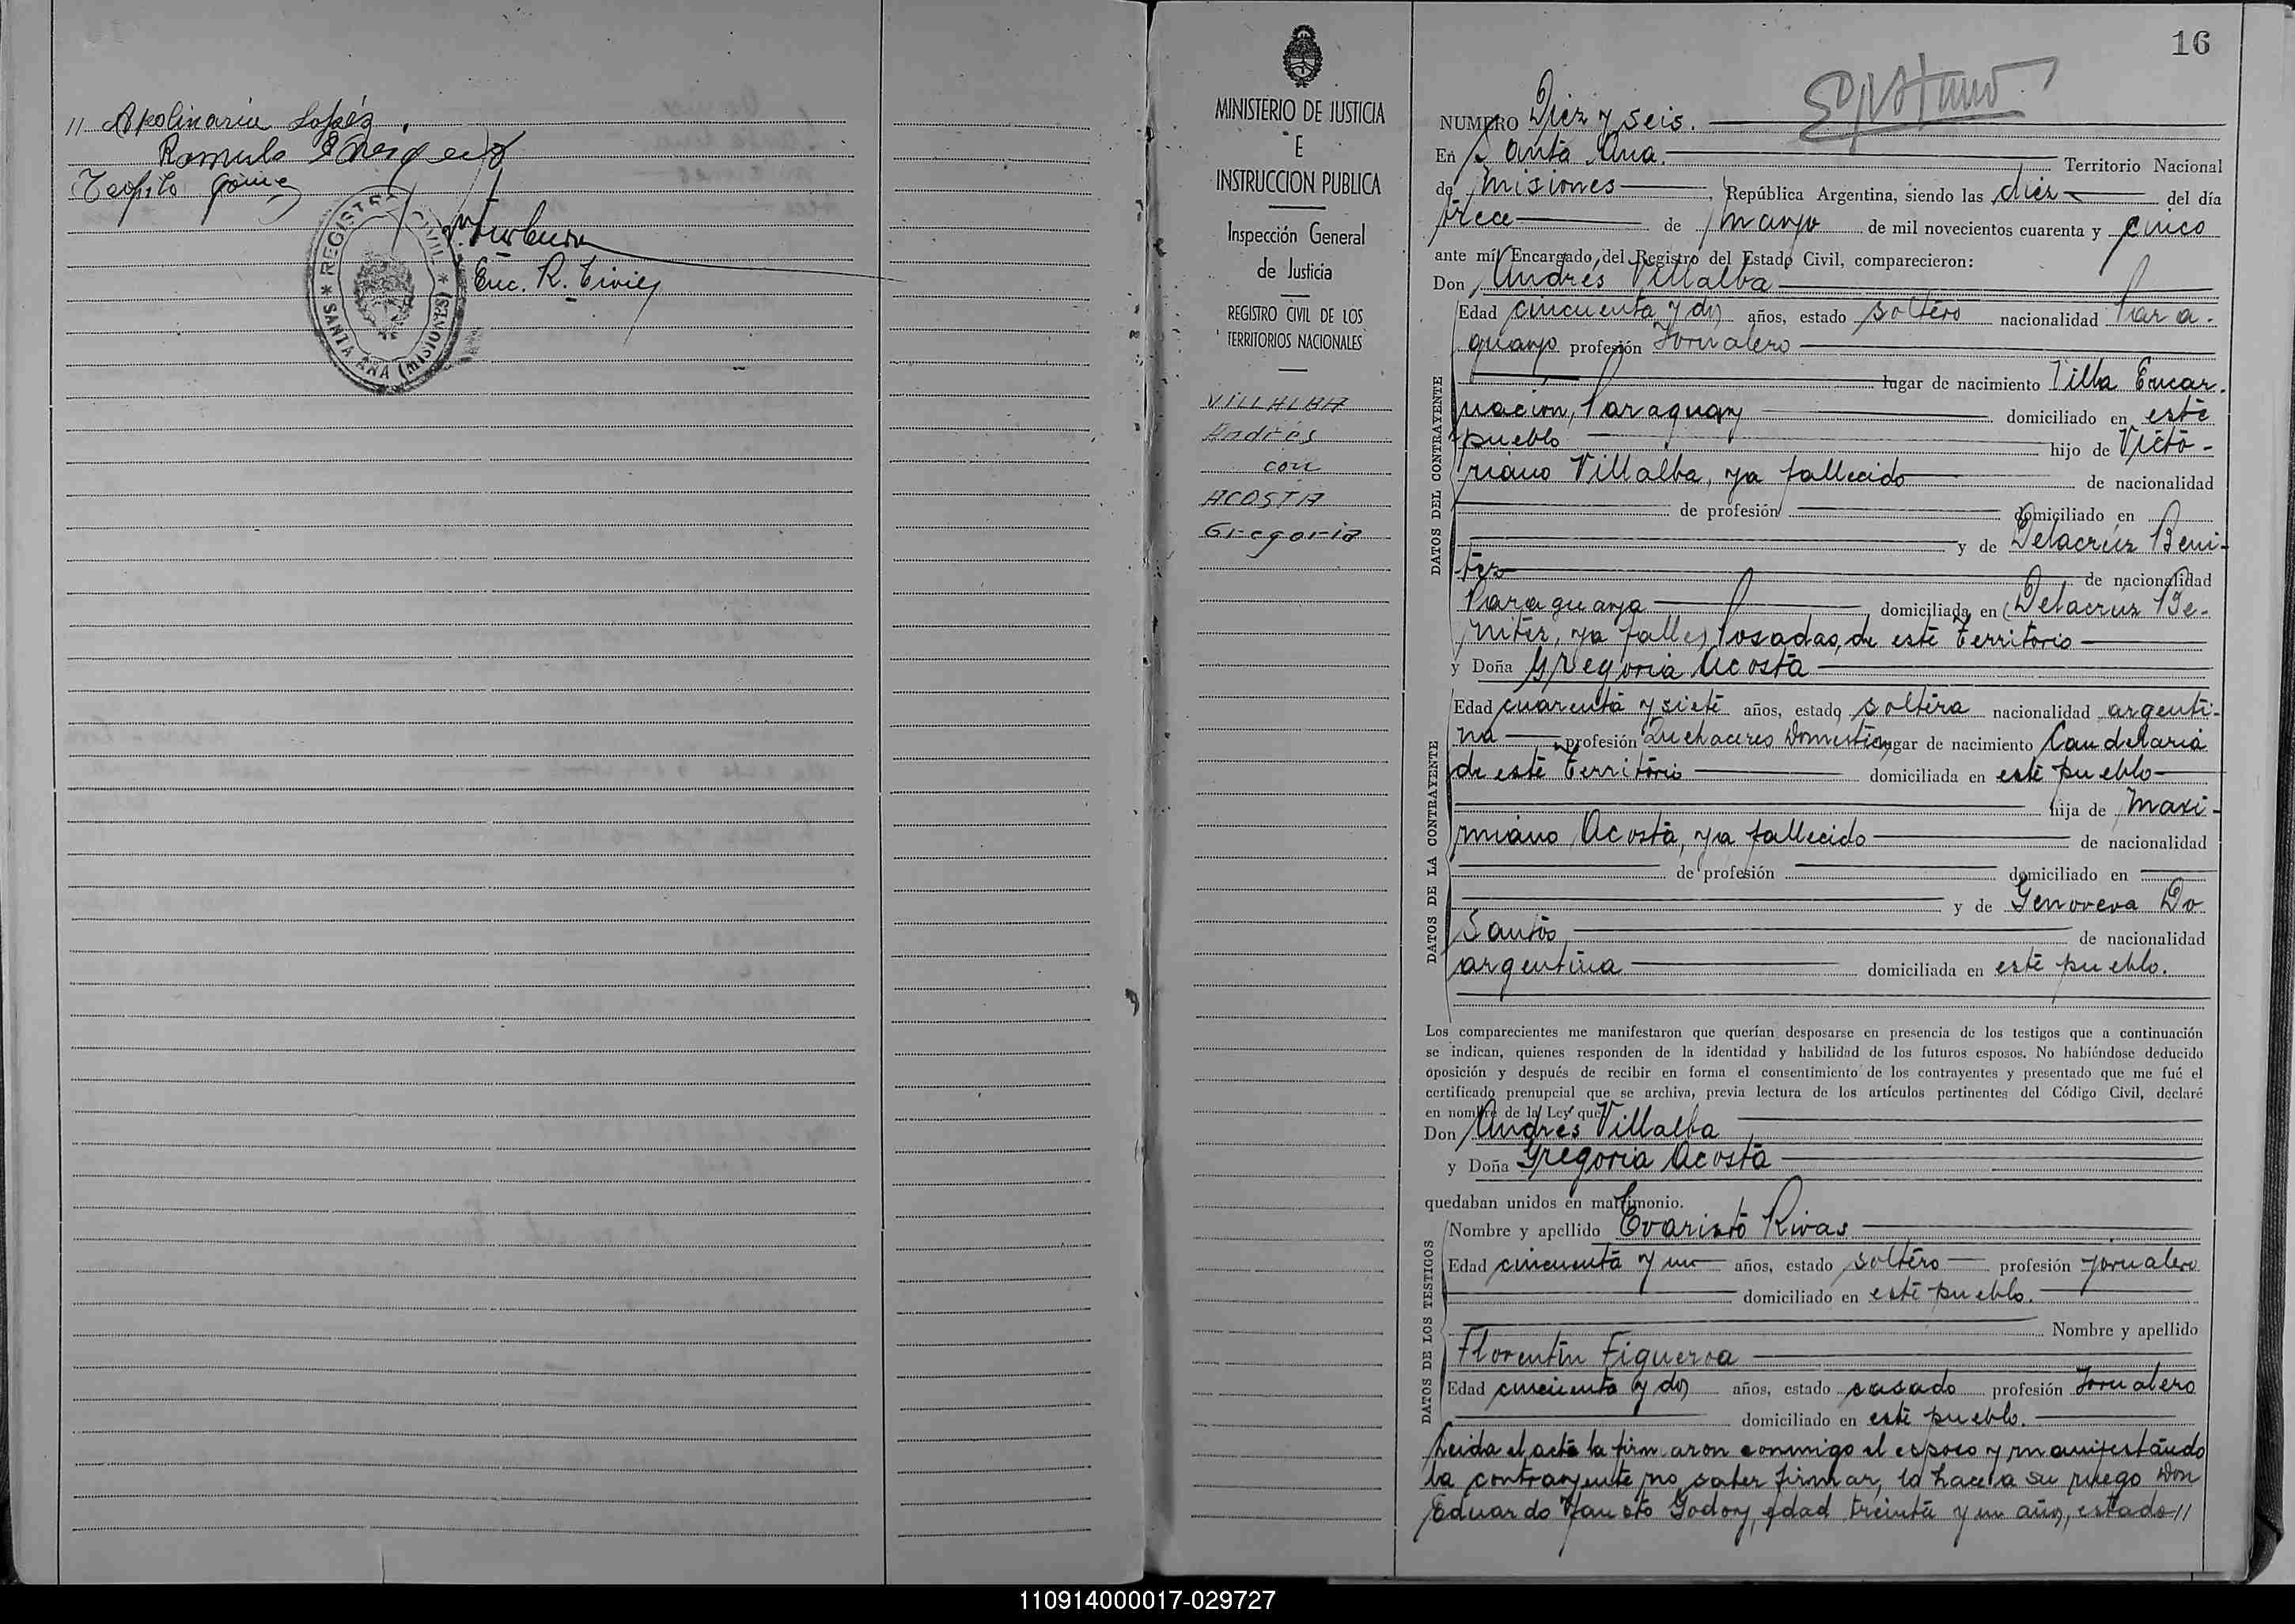 // Apolinaria López
Romulo
Teofilo Gómez
Enc. R. Civil
* REGISTRO CIVIL * SANTA ANA (MISIONES)
MINISTERIO DE JUSTICIA
E
INSTRUCCION PUBLICA
Inspección General
de Justicia
REGISTRO CIVIL DE LOS
TERRITORIOS NACIONALES
VILLALBA
Andrés
con
ACOSTA
Gregoria
16
NUMERO Diez y seis.
En Santa Ana. Territorio Nacional
de Misiones, República Argentina, siendo las diez del día
trece de mayo de mil novecientos cuarenta y cinco
ante mí, Encargado del Registro del Estado Civil, comparecieron:
Don Andrés Villalba
DATOS DEL CONTRAYENTE
Edad cincuenta y dos años, estado soltero nacionalidad Para-
guayo profesión Jornalero
lugar de nacimiento Villa Encar-
nación, Paraguay domiciliado en este
pueblo hijo de Victo-
riano Villalba, ya fallecido de nacionalidad
de profesión domiciliado en
y de Delacrúz Beni-
tez de nacionalidad
Paraguaya domiciliada en (Delacrúz Be-
nitez, ya falle) Posadas, de este territorio
y Doña Gregoria Acosta
DATOS DE LA CONTRAYENTE
Edad cuarenta y siete años, estado soltera nacionalidad argenti-
na profesión Quehaceres Domésticos lugar de nacimiento Candelaria
de este territorio domiciliada en este pueblo
hija de Maxi-
miano Acosta, ya fallecido de nacionalidad
de profesión domiciliado en
y de Genoveva Do
Santos de nacionalidad
argentina domiciliada en este pueblo.
Los comparecientes me manifestaron que querían desposarse en presencia de los testigos que a continuación
se indican, quienes responden de la identidad y habilidad de los futuros esposos. No habiéndose deducido
oposición y después de recibir en forma el consentimiento de los contrayentes y presentado que me fué el
certificado prenupcial que se archiva, previa lectura de los artículos pertinentes del Código Civil, declaré
en nombre de la Ley que
Don Andrés Villalba
y Doña Gregoria Acosta
quedaban unidos en matrimonio.
DATOS DE LOS TESTIGOS
Nombre y apellido Evaristo Rivas
Edad cincuenta y un años, estado soltero profesión jornalero
domiciliado en este pueblo.
Nombre y apellido
Florentín Figueroa
Edad cincuenta y dos años, estado casado profesión Jornalero
domiciliado en este pueblo.
Leida el acta la firmaron conmigo el esposo y manifestándo
la contrayente no saber firmar, lo hace a su ruego Don
Eduardo Fausto Godoy, edad treinta y un años, estado //
110914000017-029727